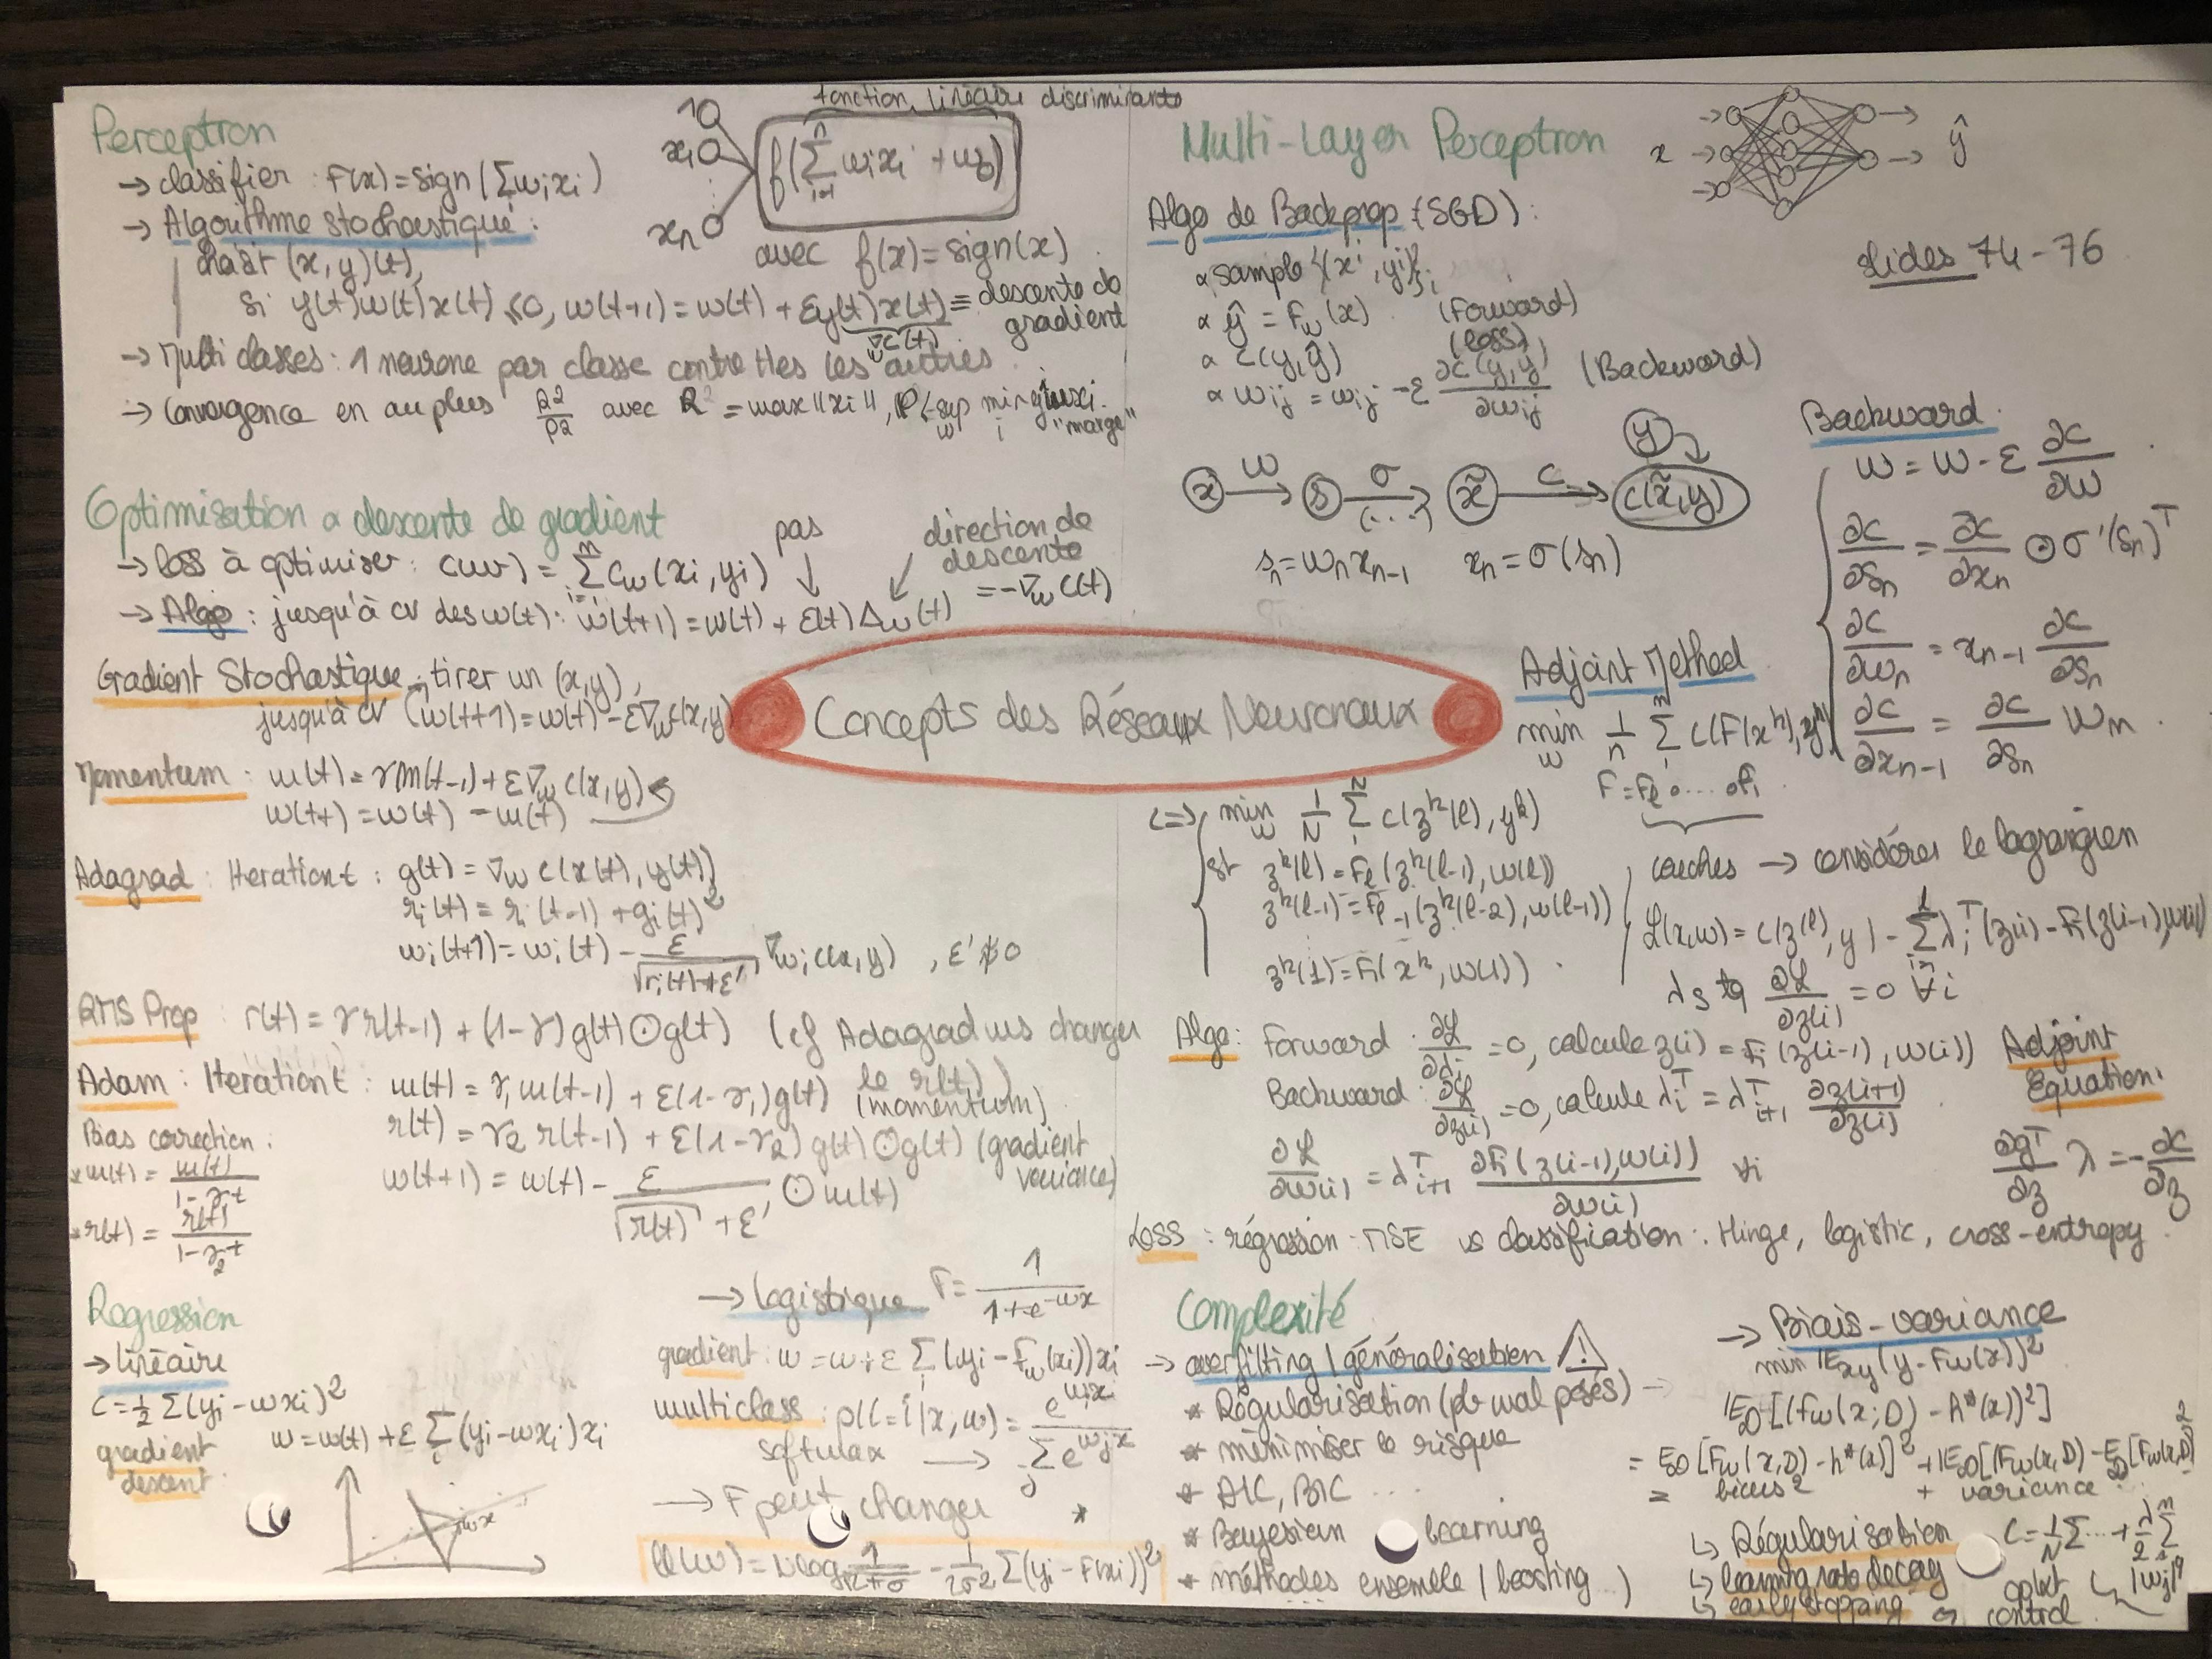 Concepts des Réseaux Neuronaux
Perceptron
→ classifier : F(x) = sign(Σ wixi)
→ Algorithme stochastique :
(x, y)(t),
si y(t)w(t)x(t) ≤0, w(t+1) = w(t) + εy(t)x(t) ≡ descente de gradient
∇w C(t)
→ Multi classes : 1 neurone par classe contre ttes les autres
→ Convergence en au plus R²/ρ² avec R² = max "xi",
"marge"
fonction linéaire discriminante
10
xi
xn
f(Σ wixi + w0)
i=1
n
avec f(x) = sign(x)
Optimisation descente de gradient
→ loss à optimiser : C(w) = Σ Cw(xi, yi)
pas
direction de descente
= -∇w C(t)
→ Algo : jusqu'à cv des w(t) : w(t+1) = w(t) + ε(t) Δw(t)
Gradient Stochastique → tirer un (x,y)
jusqu'à cv w(t+1) = w(t) - ε∇w C(x,y)
Momentum : m(t) = γm(t-1) + ε∇w C(x,y)
w(t+) = w(t) - m(t)
Adagrad : Iteration t : g(t) = ∇w C(x(t), y(t))
ri(t) = ri(t-1) + gi(t)²
wi(t+1) = wi(t) - ε/√(ri(t)+ε') ∇wi C(x,y)
RMS Prop : r(t) = γ r(t-1) + (1-γ) g(t)⊙g(t) (cf Adagrad
changer le r(t))
Adam : Iteration t : m(t) = γ1 m(t-1) + ε(1-γ1) g(t) (momentum)
r(t) = γ2 r(t-1) + ε(1-γ2) g(t)⊙g(t) (gradient variance)
w(t+1) = w(t) - ε/(√r(t) + ε') ⊙ m(t)
Bias correction :
* m(t) = m(t)/(1-γ1^t)
* r(t) = r(t)/(1-γ2^t)
Regression
→ linéaire
C = 1/2 Σ(yi - wxi)²
gradient descent
w = w(t) + ε Σ (yi - wxi)xi
wx
→ logistique F = 1/(1+e^-wx)
gradient : w = w + ε Σ (yi - Fw(xi)) xi
multiclass : p(C=i|x,w) = e^wix / Σ e^wjx
softmax →
→ F peut changer
Multi-Layer Perceptron
x
ŷ
Algo de Backprop (SGD) :
sample {(x^i, y^i)}i
ŷ = Fw(x) (Forward)
C(y, ŷ) (loss)
wij = wij - ε ∂C(y,ŷ)/∂wij (Backward)
slides 74 - 76
x w s σ (...) x̃ C C(x̃,y) y
sn = wn xn-1 xn = σ(sn)
Backward
w = w - ε ∂C/∂w
∂C/∂sn = ∂C/∂xn ⊙ σ'(sn)^T
∂C/∂wn = xn-1 ∂C/∂sn
∂C/∂xn-1 = ∂C/∂sn wn
Adjoint Method
min w 1/n Σ C(F(x^k), y^k)
F = Fl o ... o F1
couches → considérer le lagrangien
<=> min w 1/N Σ C(z^k(l), y^k)
st z^k(l) = Fl(z^k(l-1), w(l))
z^k(l-1) = Fl-1(z^k(l-2), w(l-1))
z^k(1) = F1(x^k, w(1))
L(x,w) = C(z(l), y) - Σ λi^T (z(i) - Fi(z(i-1), w(i)))
λ tq ∂L/∂z(i) = 0 ∀i
Algo : Forward : ∂L/∂λi = 0, calcule z(i) = Fi(z(i-1), w(i))
Backward : ∂L/∂z(i) = 0, calcule λi^T = λi+1^T ∂z(i+1)/∂z(i)
∂L/∂w(i) = λi+1^T ∂Fi(z(i-1),w(i))/∂w(i) ∀i
Adjoint Equation
∂g^T/∂z λ = -∂C/∂z
Loss : régression : MSE vs classification : Hinge, logistic, cross-entropy
Complexité
→ overfitting / généralisation
* Régularisation (pb mal posés)
* minimiser le risque
* AIC, BIC ...
* Bayesian learning
* méthodes ensemble (boosting...)
→ Biais-variance
min Exy(y - Fw(x))²
ED[(Fw(x;D) - h*(x))²]
= ED[Fw(x,D) - h*(x)]² + ED[(Fw(x,D) - ED[Fw(x,D)])²
= biais² + variance
↳ Régularisation C = 1/N Σ... + λ/2 Σ |wj|^q
↳ learning rate decay
↳ early stopping
control